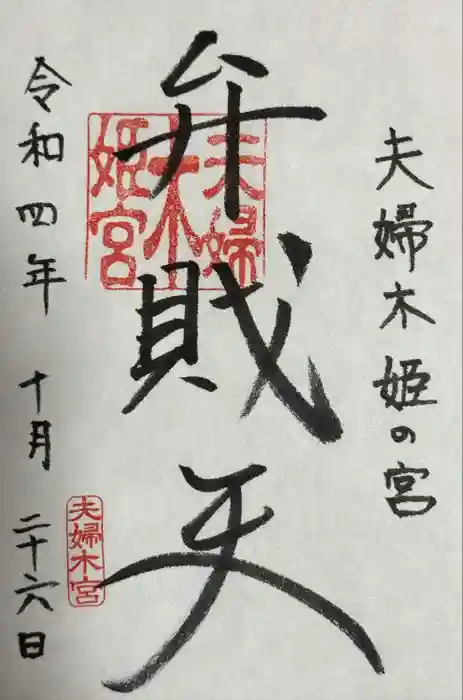 夫婦木姫の宮
弁財天
夫婦
木
姫宮
夫婦木宮
令和四年 十月 二十六日